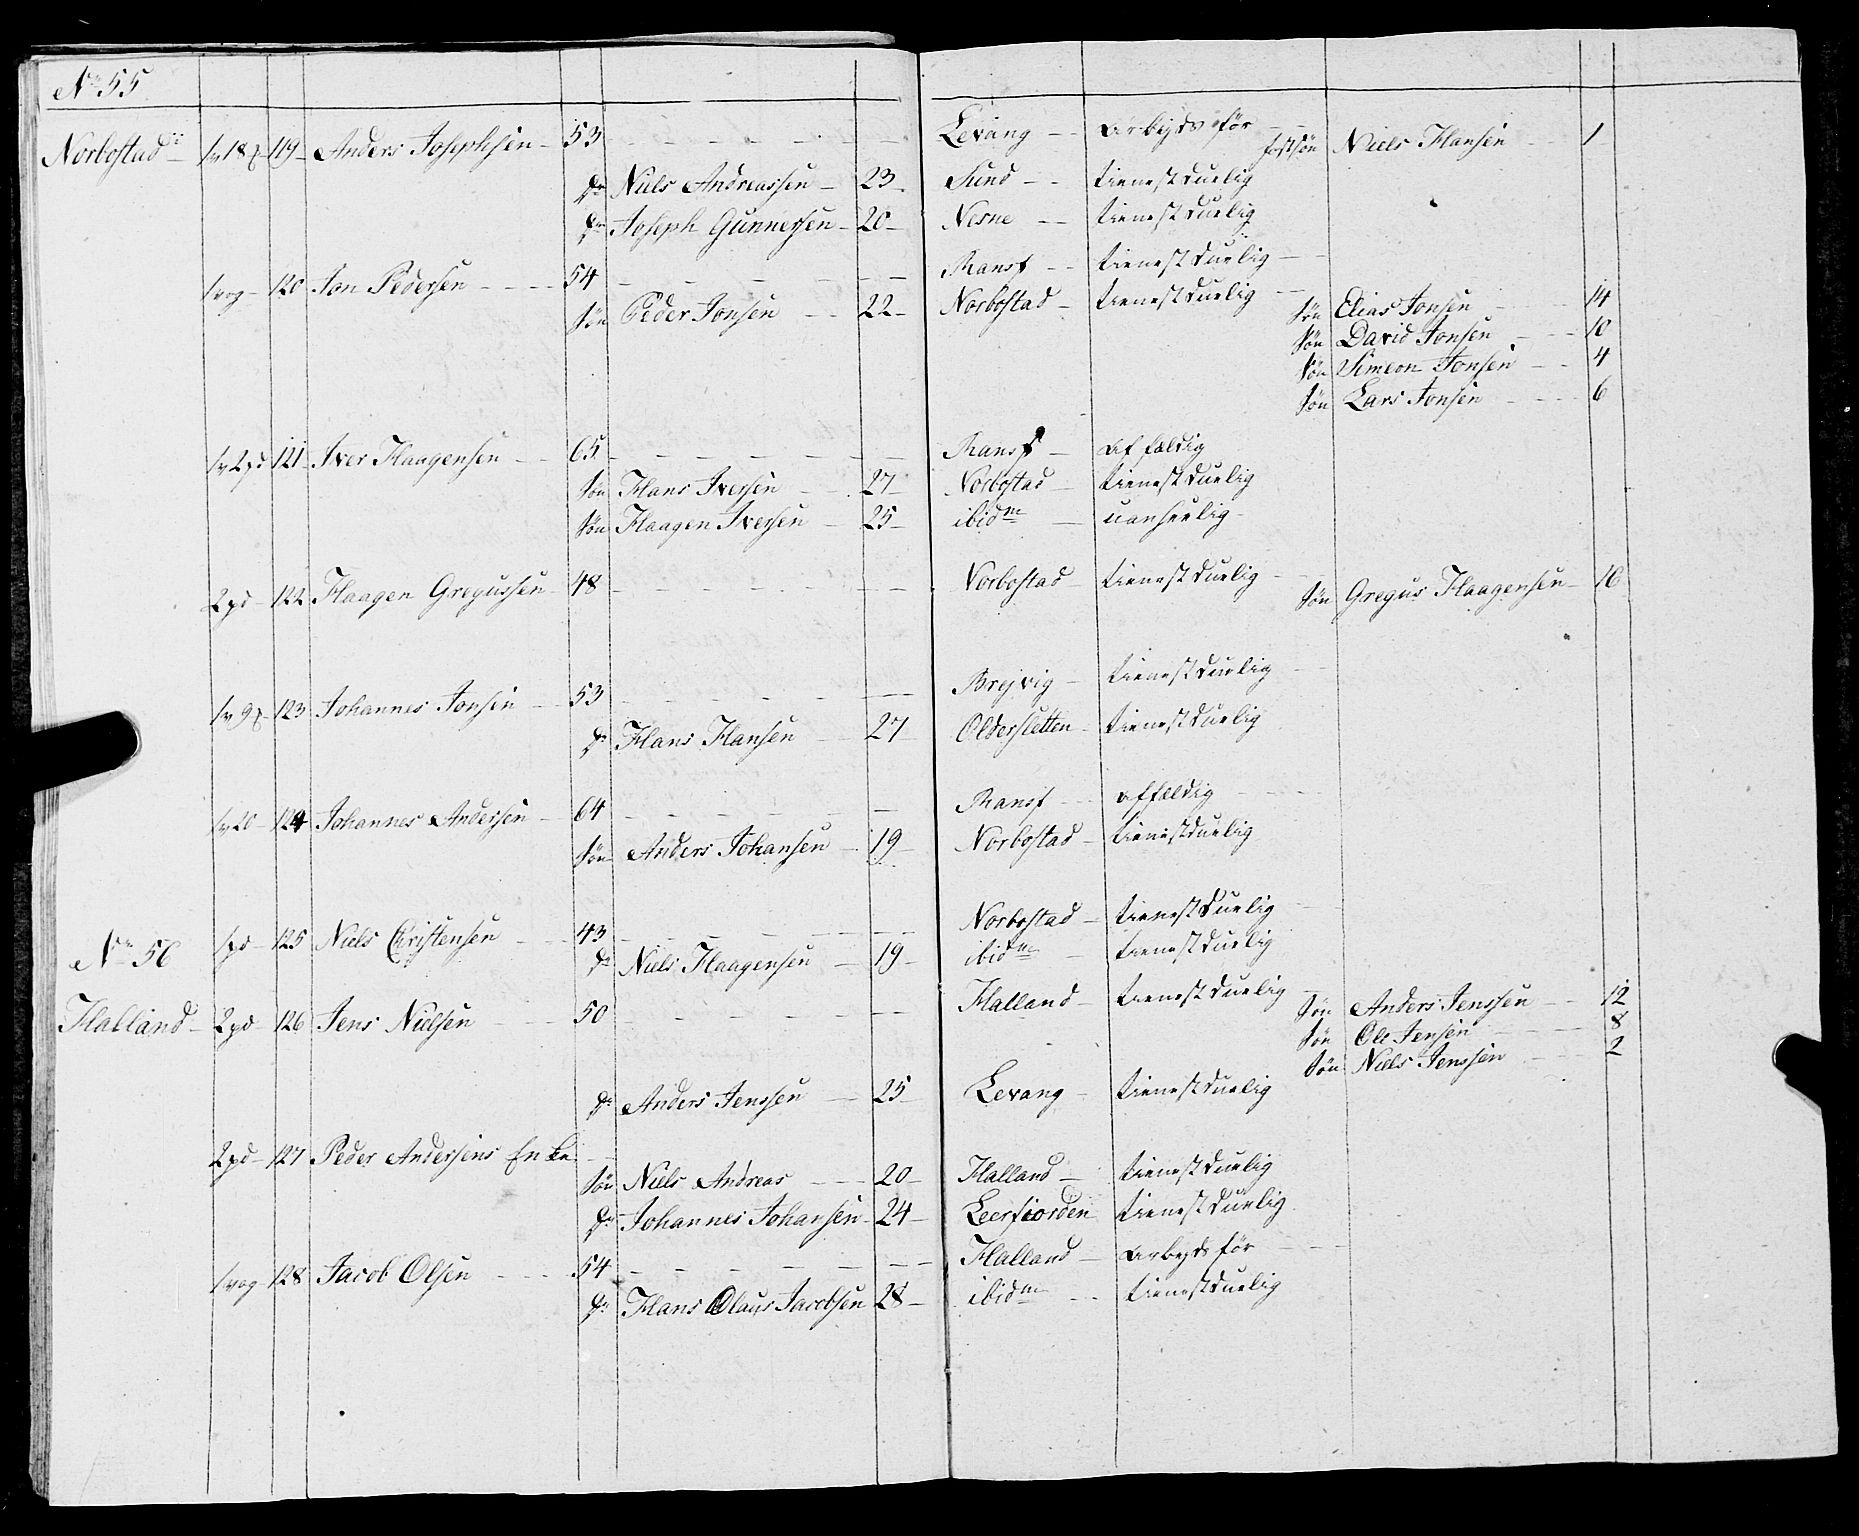 No 55
Norbostad 1v 18 119 Anders Josephsen 53 Levang arbejdsfør fostsøn Niels Hansen 1
dr Niels Andreassen 23 Sund tienestduelig
dr Joseph Gunnersen 20 Nesne tienestduelig
1vog 120 Jon Pedersen 54 Ransf tienestduelig
søn Peder Jonsen 22 Norbostad tienestduelig søn Elias Jonsen 14
søn David Jonsen 10
søn Simeon Jonsen 4
søn Lars Jonsen 6
1v 2pd 121 Iver Haagensen 65 Ransf affældig
søn Hans Iversen 27 Norbostad tienestduelig
søn Haagen Iversen 25 ibidm uanseelig
2pd 122 Haagen Gregussen 48 Norbostad tienestduelig søn Gregus Haagensen 16
1v 9 123 Johannes Jonsen 53 Brejvig tienestduelig
dr Hans Hansen 27 Oldersletten tienestduelig
1v 20 124 Johannes Andersen 64 Ransf affældig
søn Anders Johansen 19 Norbostad tienestduelig
1pd 125 Niels Christensen 43 Norbostad tienestduelig
No 56
dr Niels Haagensen 19 ibidm tienestduelig
Halland 2pd 126 Jens Nielsen 50 Halland tienestduelig søn Anders Jenssen 12
søn Ole Jensen 8
søn Niels Jenssen 2
dr Anders Jenssen 25 Levang tienestduelig
2pd 127 Peder Andersens Enke
søn Niels Andreas 20 Halland tienestduelig
dr Johannes Johansen 24 Leerfiorden tienestduelig
1vog 128 Jacob Olsen 54 Halland arbejdsfør
dr Hans Olaus Jacobsen 28 ibidm tienestduelig